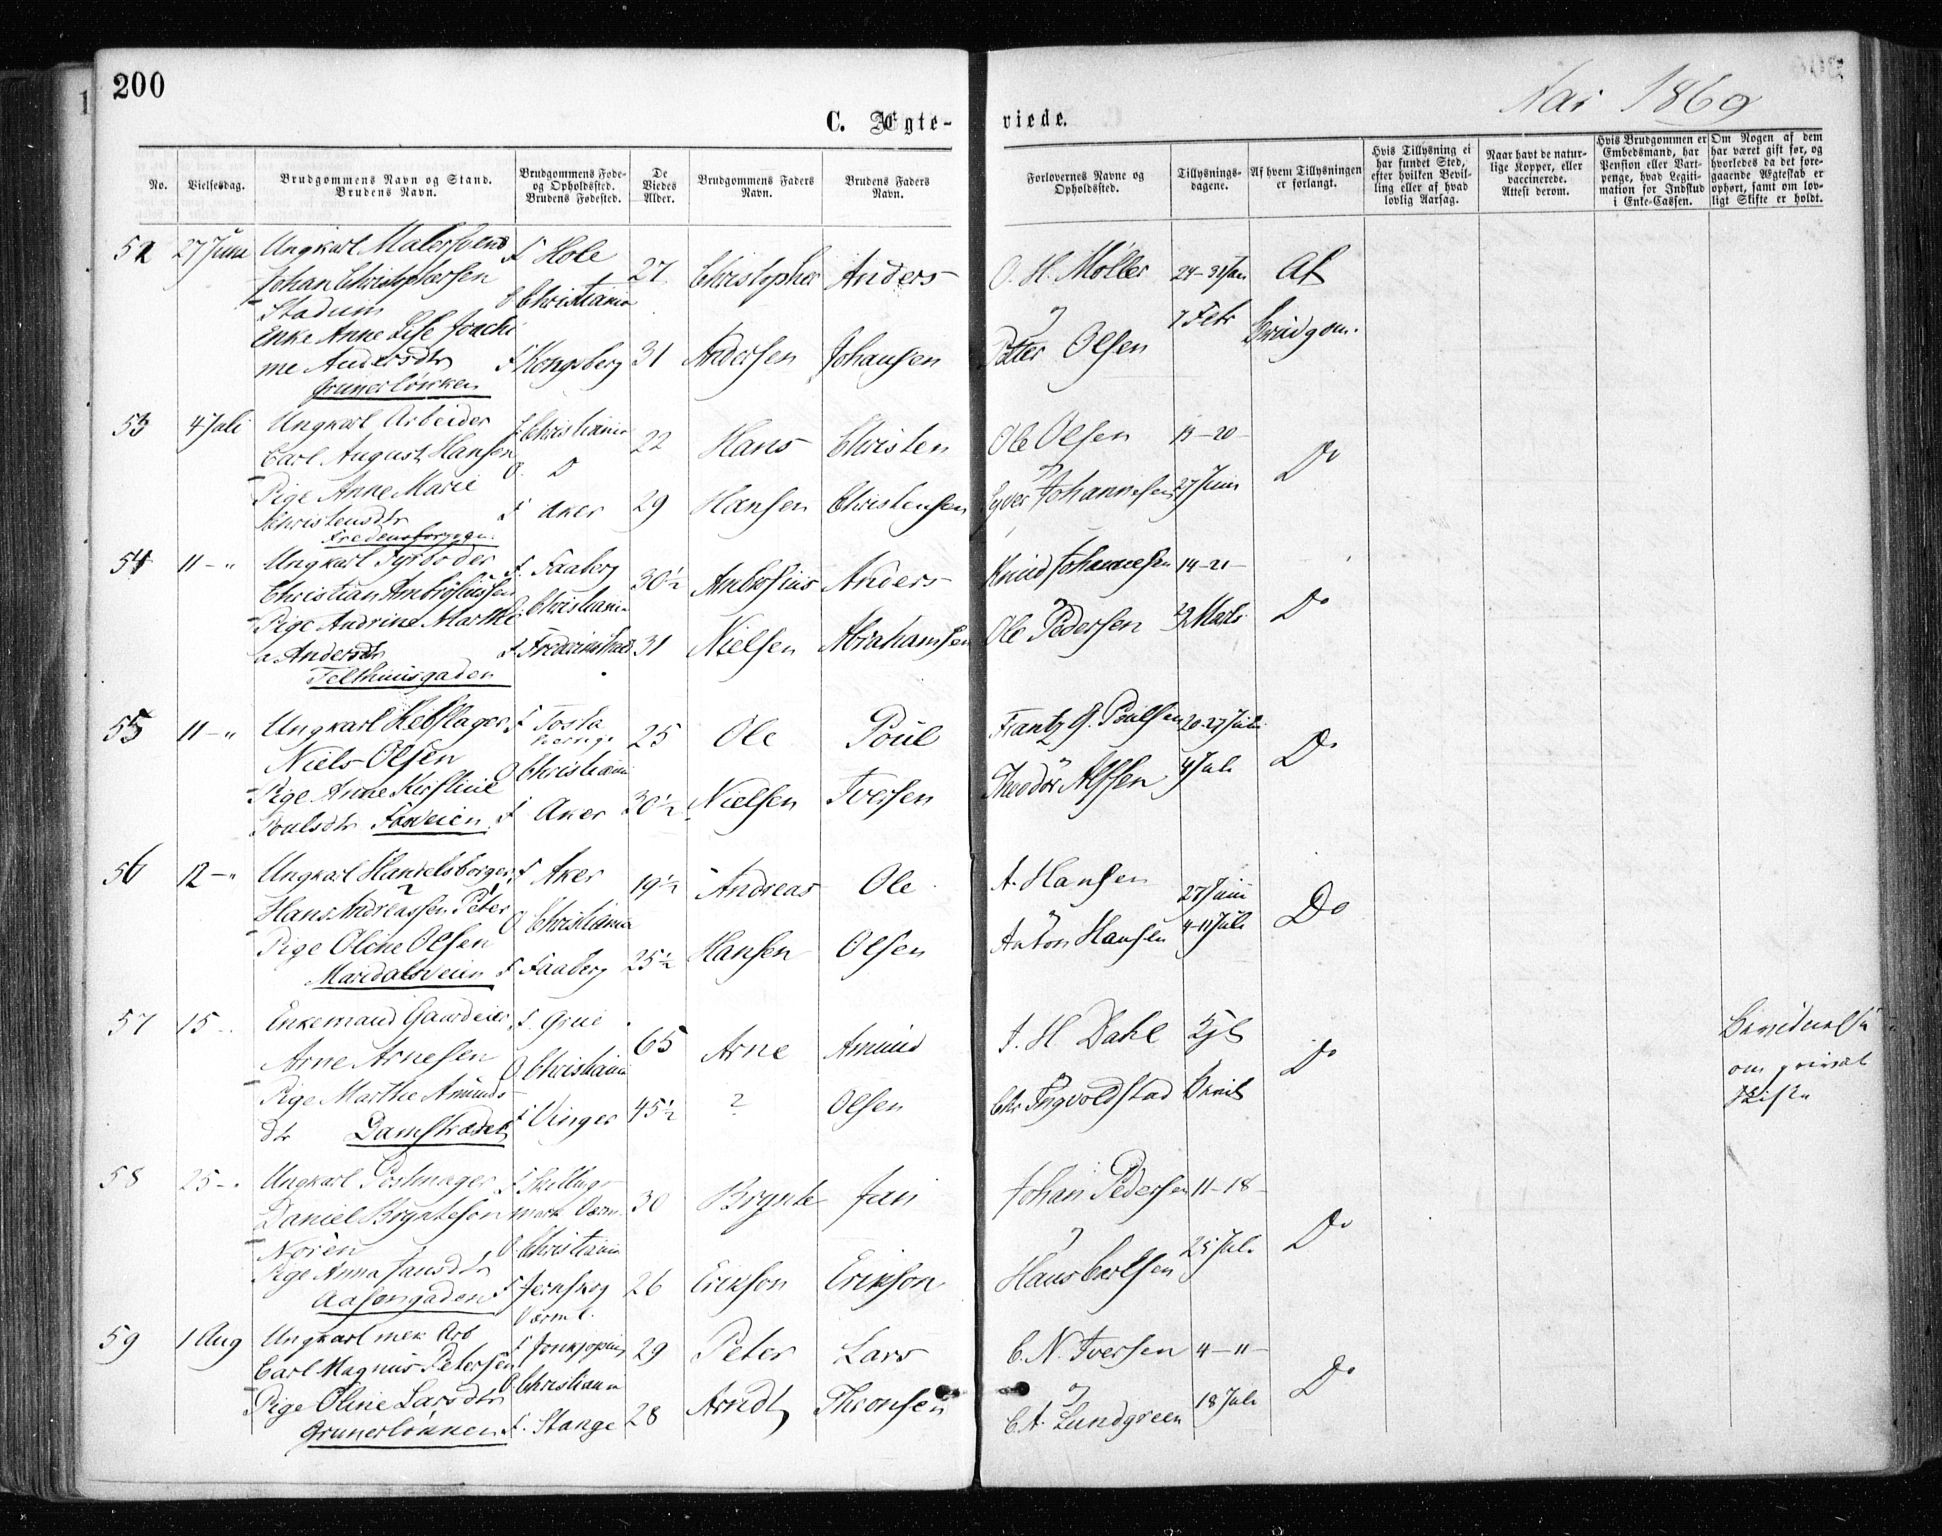 200
C. Ægte-
viede.
Aar 1869
No.
Vielsesdag.
Brudgommens Navn og Stand.
Brudens Navn.
Brudgommens Føde-
og Opholdssted.
Brudens Fødested.
De
Viedes
Alder.
Brudgommens Faders
Navn.
Brudens Faders
Navn.
Forlovernes Navne og
Opholdssted.
Tillysnings-
dagene.
Af hvem Tillysningen
er forlangt.
Hvis Tillysning ei
har fundet Sted,
efter hvilken Bevil-
ling eller af hvad
lovlig Aarsag.
Naar havt de natur-
lige Kopper, eller
vaccinerede.
Attest derom.
Hvis Brudgommen er
Embedsmand, har
Pension eller Vart-
penge, hvad Legiti-
mation for Indskud
i Enke-Cassen.
Om Nogen af dem
har været gift før, og
hvorledes da det fore-
gaaende Ægteskab er
ophørt, samt om lov-
ligt Skifte er holdt.
52 27 Juni Ungkarl Malersvend F Hole 27 Christopher Anders O. H. Møller 24-31 Jan Af
Johan Christophersen O Christiania
Stadum 7 Febr Brudgom.
Enke Anne Lise Joachi
me Andersdtr F Kongsberg 31 Andersen Johansen Petter Olsen
Grünerløkken
53 4 Juli Ungkarl Arbeider F. Christiania 22 Hans Christen Ole Olsen 13-20-
Carl August Hansen O. D Do
Pige Anne Marie F Aker 29 Hansen Christensen Johannesen 27 Juni
Christensdtr
54 11 - " Ungkarl Fyrbøder F. Faaberg 30½ Ambrosius Anders Knud Johannesen 14-21-
Christian Ambrosiussen O Christiania
Pige Andrine Marth F. Frederikshald 31 Nielsen Abrahamsen Ole Pedersen Marts Do
a Andersdtr
Telthuusgaden
55 11 - " Ungkarl Rebslager F Tosta 25 Ole Poul Frantz G. Poulsen 20-27 Juni
Niels Olsen Sverrige
O Christiania Do
Pige Anne Kirstine F Aker 30½ Nielsen Iversen Theodor Alfsen 4 Juli
Poulsdtr
56 12 - " Ungkarl Handelsborger F Aker 19½ Andreas Ole A. Hansen 27 Juni
Hans Andreassen Peter O Christiania Do
Pige Oline Olsen F Faaberg 25½ Hansen Olsen Anton Hansen 4-11 Juli
Maridalsveien
57 15 - Enkemand Gaardeier F. Grue 65 Arne Amund A. H Dahl Kgl
Arne Arnesen O Christiania Do
Pige Marthe Amunds- F Vinger 45½ ? Olsen Chr Ingvoldstad
dtr Damstrædet
om privat
Skifte
58 25 - . Ungkarl Postmager F Skillings 30 Brynte Jan Johan Pedersen 11-18-
Daniel Brynteson mark Værm.
Noren O Christiania Do
Pige Anna Jansdtr F Jernskog 26 Erikson Erikson Hans Carlsen 25 Juli
Aasengaden Værml.
59 1 Aug Ungkarl mek Arb F Jonkjøping 29 Peter Lars C. N. Iversen 4-11-
Carl Magnus Petersen O Christiania Do
Pige Oline Larsdtr F. Stange 28 Arndt Thronsen C. A. Lundgreen 18 Juli
Grünerløkken